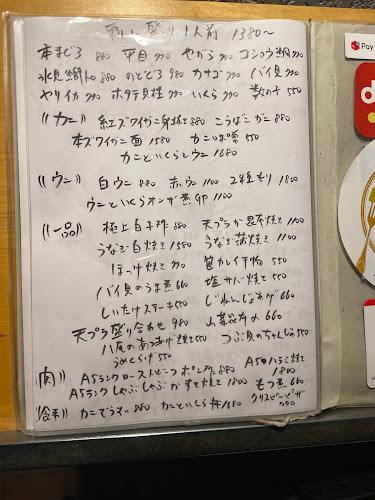 刺し盛り1人前 1380〜
本まぐろ 880 平目 770 やがら 770 コショウ鯛 770
氷見鰤トロ 880 のどぐろ 980 カサゴ 770 バイ貝 770
ヤリイカ 770 ホタテ貝柱 770 いくら 770 数の子 550
《カニ》 紅ズワイガニ身抜き 880 こうばこガニ 880
本ズワイガニ面 1580 カニ味噌 550
カニといくらとウニ 1680
《ウニ》 白ウニ 880 赤ウニ 1100 2種盛り 1800
ウニといくらオンザ煮卵 1100
《一品》 極上白子ポン酢 880 天プラか昆布焼き 1100
うなぎ白焼き 1580 うなぎ蒲焼き 1100
ほっけ焼き 770 笹カレイ干物 550
バイ貝のうま煮 660 塩サバ焼き 550
しいたけステーキ 550 じゃこんじょあげ 660
天プラ盛り合わせ 980 山菜昆布〆 660
八尾のあつあげ焼き 550 つぶ貝のちゃんじゃ 550
うめくらげ 550
《肉》 A5ランクローストビーフポン酢 880 A5和ハラミ焼き 1800
A5ランクしゃぶしゃぶかすき焼き 1800 もつ煮 660
カニぞうすい 880 カニといくら丼 1680 クリスピーピザ 770
Pay